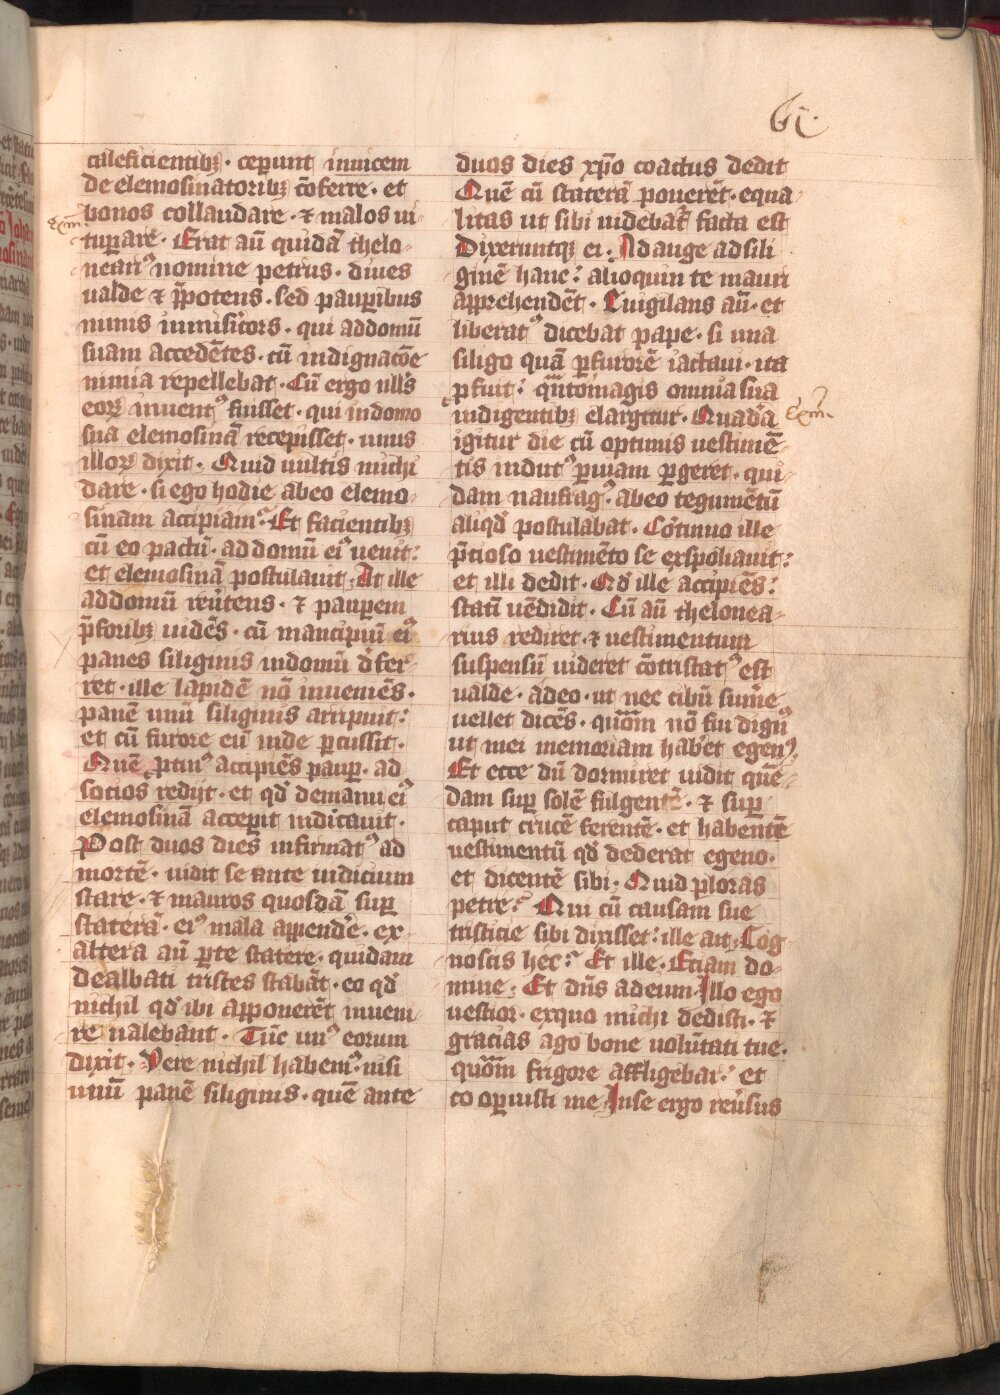 61
calefacientibꝫ · ceperunt inuicem
de elemosinatoribꝫ cōferre · et
bonos collaudare · ⁊ malos ui-
tuꝑare · Erat aū quidā thelo-
nearꝰ nomine petrus · diues
ualde ⁊ p̄potens · sed pauꝑibus
nimis inmisicors · qui ad domū
suam accedētes · cū indignacōe
nimia repellebat · Cū ergo ullꝰ
eoꝝ inuentꝰ fuisset · qui in domo
sua elemosinā recepisset · unus
illoꝝ dixit · Quid uultis michi
dare · si ego hodie ab eo elemo-
sinam accipiam · Et facientibꝫ
cū eo pactū · ad domū eiꝰ uenit :
et elemosinā postulauit · At ille
ad domū reūtens · ⁊ pauꝑem
p̄ foribꝫ uidēs · cū mancipiū eiꝰ
panes siliginis in domū d̄fer-
ret · ille lapidē nō inueniēs ·
panē unū siliginis arripuit :
et cū furore eū inde ꝑcussit ·
Quē ꝓtinꝰ accipiēs pauꝑ · ad
socios redijt · et qd̄ de manu eiꝰ
elemosinā acceꝑit indicauit ·
Post duos dies infirmatꝰ ad
mortē · uidit se ante iudicium
stare · ⁊ mauros quosdā suꝑ
staterā · eiꝰ mala appendē · ex
altera aū ꝑte statere · quidam
dealbati tristes stabāt · eo qd̄
nichil qd̄ ibi apponerēt inueni-
re ualebant · Tūc unꝰ eorum
dixit · Vere nichil habemꝰ nisi
unū panē siliginis · quē ante
Exm̄
duos dies xp̄o coactus dedit
Quē cū staterā ponerēt · equa-
litas ut sibi uidebat᷑ facta est
Dixeruntqꝫ ei · Ad auge ad sili-
ginē hanc : alioquin te mauri
apprehendēt · Euigilans aū · et
liberatꝰ dicebat pape · si una
siligo quā ꝑ furorē iactaui · ita
ꝓfuit : qn̄to magis omnia sua
indigentibꝫ elargitur · Quadā
igitur die cū optimis uestimē-
tis indutꝰ ꝑ uiam ꝑgeret · qui-
dam naufragꝰ ab eo tegumētū
aliqd̄ postulabat · Cōtinuo ille
p̄cioso uestimēto se exspoliauit :
et illi dedit · Qd̄ ille accipiēs :
statī uēdidit · Cū aū thelonea-
rius rediret · ⁊ uestimentum
suspensū uideret cōtristatꝰ est
ualde · adeo · ut nec cibū sum̄e
uellet dicēs · quōm nō fui dignꝰ
ut mei memoriam hab̄et egenꝰ
Et ecce dū dormiret uidit quē-
dam suꝑ solē fulgentē · ⁊ suꝑ
caput crucē ferentē · et habentē
uestimentū qd̄ dederat egeno ·
et dicentē sibi · Quid ploras
petre · Qui cū causam sue
tristicie sibi dixisset : ille ait · Cog-
noscis hec · Et ille · Etiam do-
mine · Et dn̄s ad eum · Illo ego
uestior · ex quo michi dedisti · ⁊
gracias ago bone uolūtati tue ·
quōm frigore affligebar · et
co oꝑuisti me · In se ergo reūsus
Exm̄